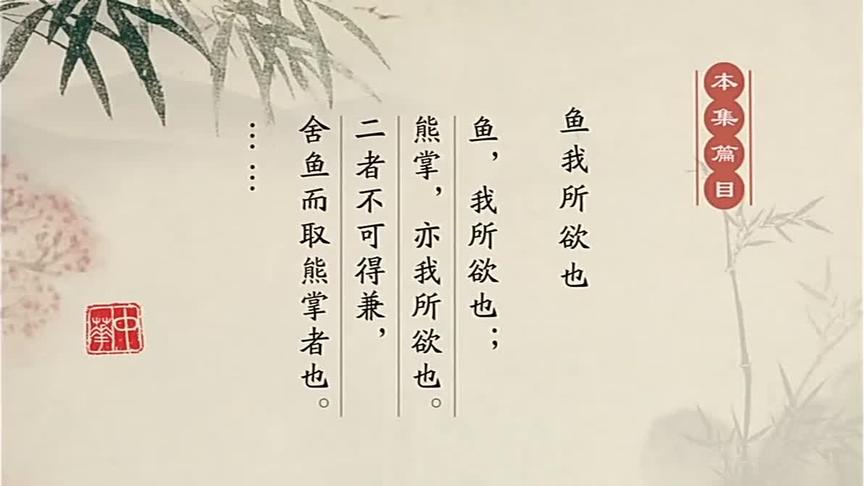 本集篇目
鱼我所欲也
鱼，我所欲也；
熊掌，亦我所欲也。
二者不可得兼，
舍鱼而取熊掌者也。
……
中华